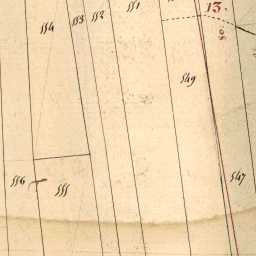 554
553
552
551
13.
50.
549
556
555
547